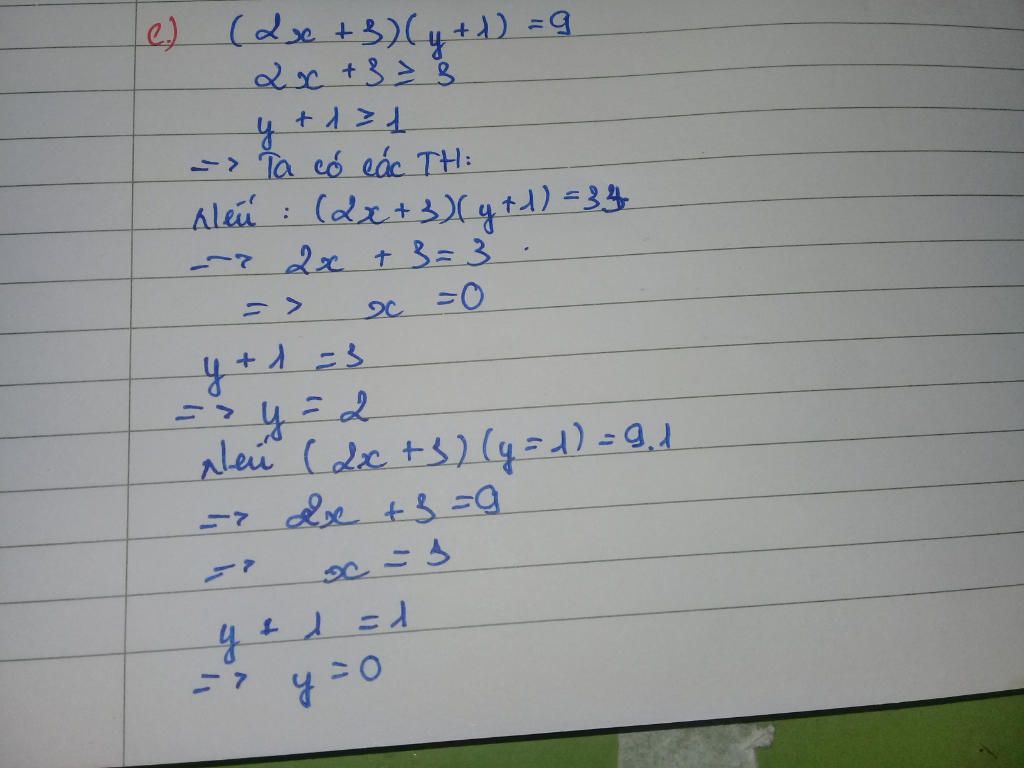 c.) (2x + 3)(y+1) = 9
2x + 3 ≥ 3
y + 1 ≥ 1
=> Ta có các TH:
Nếu : (2x + 3)(y+1) = 3.3
=> 2x + 3 = 3
=> x = 0
y + 1 = 3
=> y = 2
Nếu (2x + 3)(y = 1) = 9.1
=> 2x + 3 = 9
=> x = 3
y + 1 = 1
=> y = 0